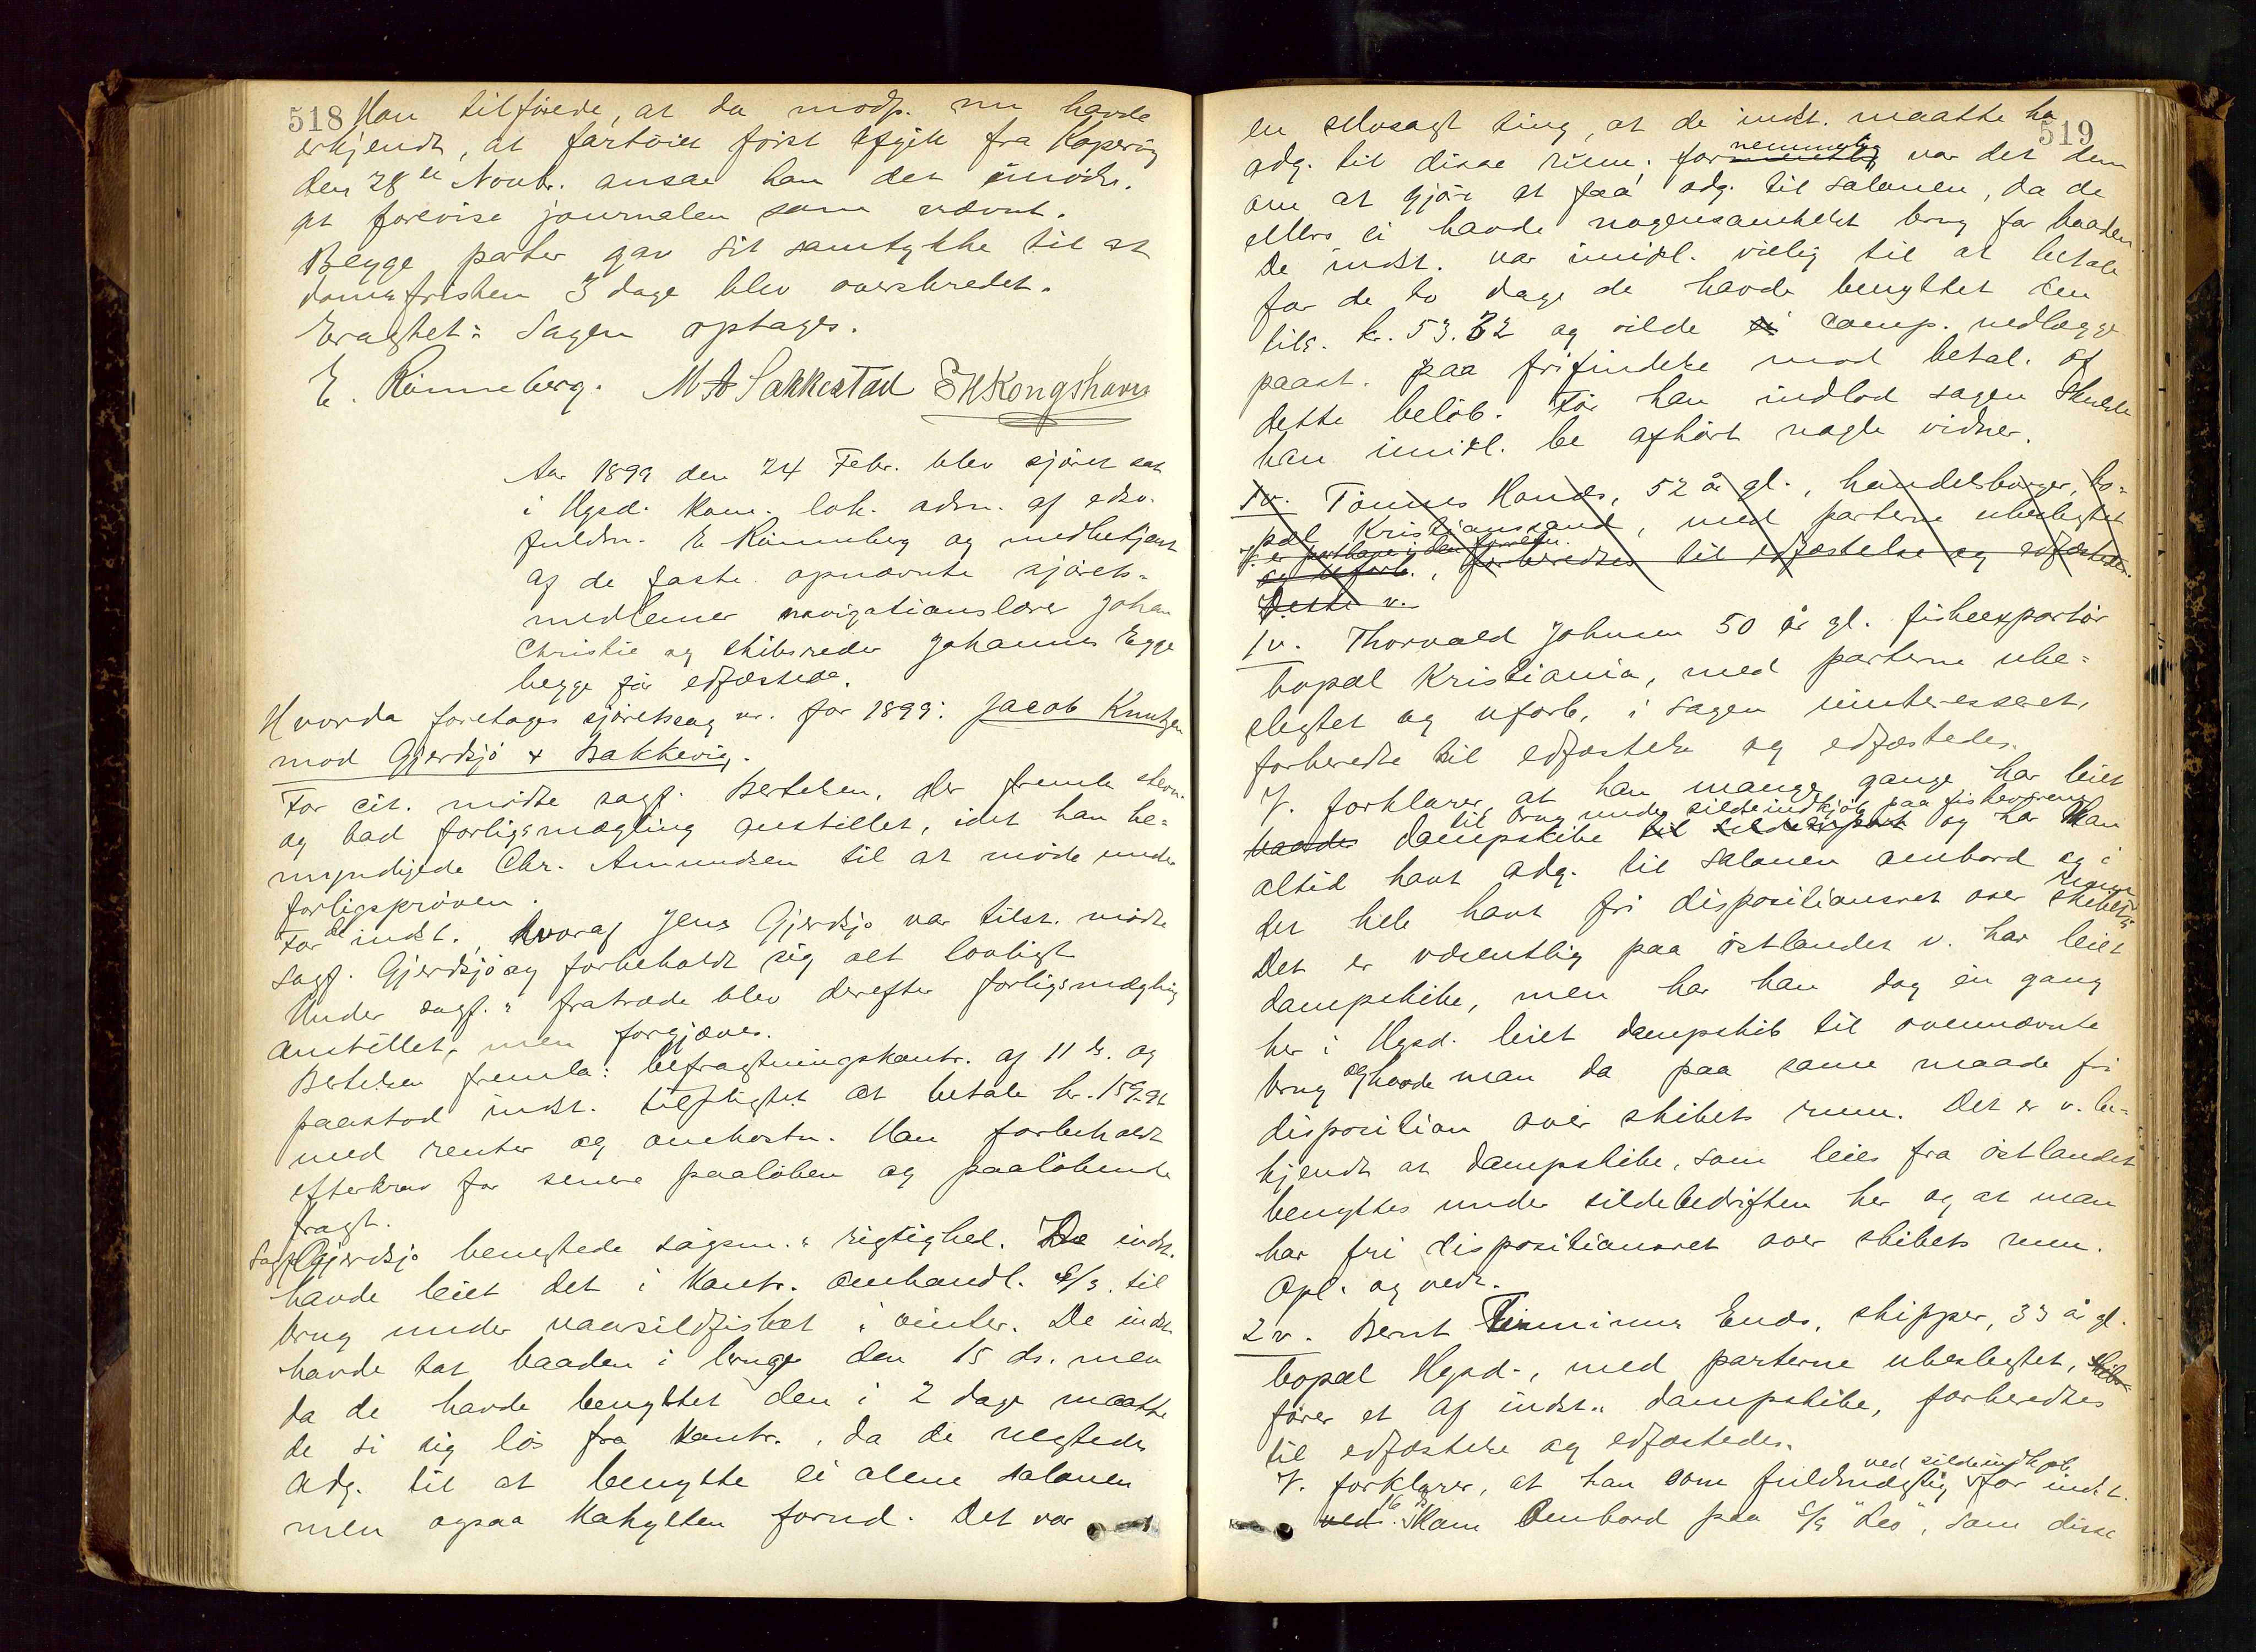 518 Han tilføiede, at da modp. nu havde
erkjendt, at fartøiet først afgik fra Kopervig
den 28de Novbr. ansaa han det unødv.
at forevise journalen som nævnt.
Begge parter gav sit samtykke til at
domsfristen 3 dage blev overskredet.
Eragtet: Sagen optages.
E. Rønneberg. M A Sakkestad E H Kongshavn
Aar 1899 den 24 Febr. blev sjøret sat
i Hgsd. kom. lok. adm. af edsv.
fuldm. E Rønneberg og medbetjent
af de faste opnævnte sjørets-
medlemer navigationslærer Johan
Christie og skibsreder Johannes Egge
begge før edfæstede.
Hvorda foretoges sjøretssag nr. for 1899: Jacob Knutzen
mod Gjerdsjø & Bakkevig.
For cit. mødte sagf. Bertelsen, der fremla stevn.
og bad forligsmægling anstillet, idet han be-
myndigede Chr. Amundsen til at møde under
forligsprøven.
For de indst., hvoraf Jens Gjerdsjø var tilst. mødte
sagf. Gjerdsjø og forbeholdt sig alt lovligt
Under sagf.s fratræde blev derefter forligsmægling
anstillet, men forgjæves.
Bertelsen fremla: befragtningskontr. af 11 ds. og
paastod indst. tilpligtet at betale kr. 159.96
med renter og omkostn. Han forbeholdt
efterkrav for senere paaløben og paaløbende
fragt.
Sagf. Gjerdsjø benegtede søgsm.s rigtighed. De indst.
havde leiet det i kontr. omhandl. d/s. til
brug under vaarsildfisket i vinter. De indst
havde tat baaden i bruge den 15 ds. men
da de havde benyttet den i 2 dage maatte
de si sig løs fra kontr., da de negtedes
adg. til at benytte ei alene salonen
men ogsaa kahytten forud. Det var
519
en selvsagt ting, at de indst. maatte ha
adg. til disse rum; for nemmelig var det dem
om at gjøre at faa adg. til salonen, da de
ellers ei havde nogensomhelst brug for baaden
De indst. var imidl. villig til at betale
for de to dage de havde benyttet den
tils. kr. 53.32 og vilde ei comp. nedlægge
paast. paa frifindelse mod betal. af
dette beløb. Før han indlod sagen skulde
han imidl. be afhørt nogle vidner.
1v. Tønnes Hands, 52 år gl., handelsborger, bo-
pæl Kristianssand, med parterne ubeslegtet
og uforb., forberedtes til edfæstelse og edfæstedes.
Dette v.
1v. Thorvald Johnsen 50 år gl. fiskeexportør
bopæl Kristiania, med parterne ube-
slegtet og uforb. i sagen uinteresseret,
forberedte til edfæstelse og edfæstedes.
V. forklarer, at han mange gange har leiet
til brug under sildeindkjøb paa fiskeværene
baade dampskibe til sildexport og har han
altid havt adg. til salonen ombord og i
det hele havt fri dispositionsret over skibets rum
Det er væsentlig paa østlandet v. har leiet
dampskibe, men har han dog én gang
her i Hgsd. leiet dampskib til ovennævnte
brug og havde man da paa samme maade fri
disposition over skibets rum. Det er v. be-
kjendt at dampskibe, som leies fra østlandet
benyttes under sildebedriften her og at man
har fri dispositionsret over skibets rum.
Opl. og vedt.
2v. Bernt Ends, skipper, 33 år gl.
bopæl Hgsd., med parterne ubeslegtet,
fører et af indst.s dampskibe, forberedtes
til edfæstelse og edfæstedes.
V. forklarer, at han som fuldmægtig ved sildeindkjøb for indst.
ved 16 ds. kom ombord paa d/s "Leo", som disse